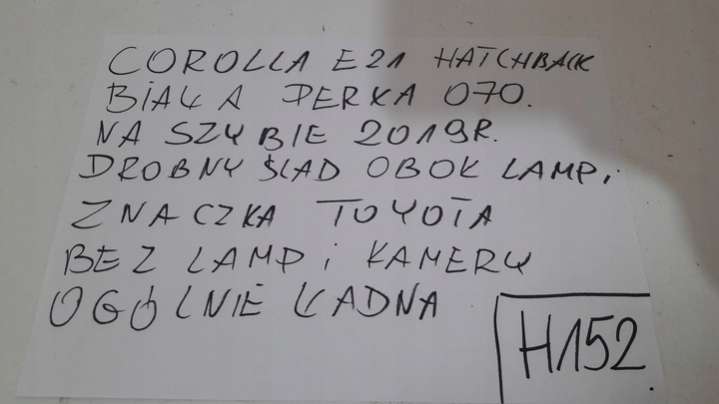 COROLLA E21 HATCHBACK
BIAŁA PERŁA 070.
NA SZYBIE 2019R.
DROBNY ŚLAD OBOK LAMP i
ZNACZKA TOYOTA
BEZ LAMP i KAMERY
OGÓLNIE ŁADNA
H152